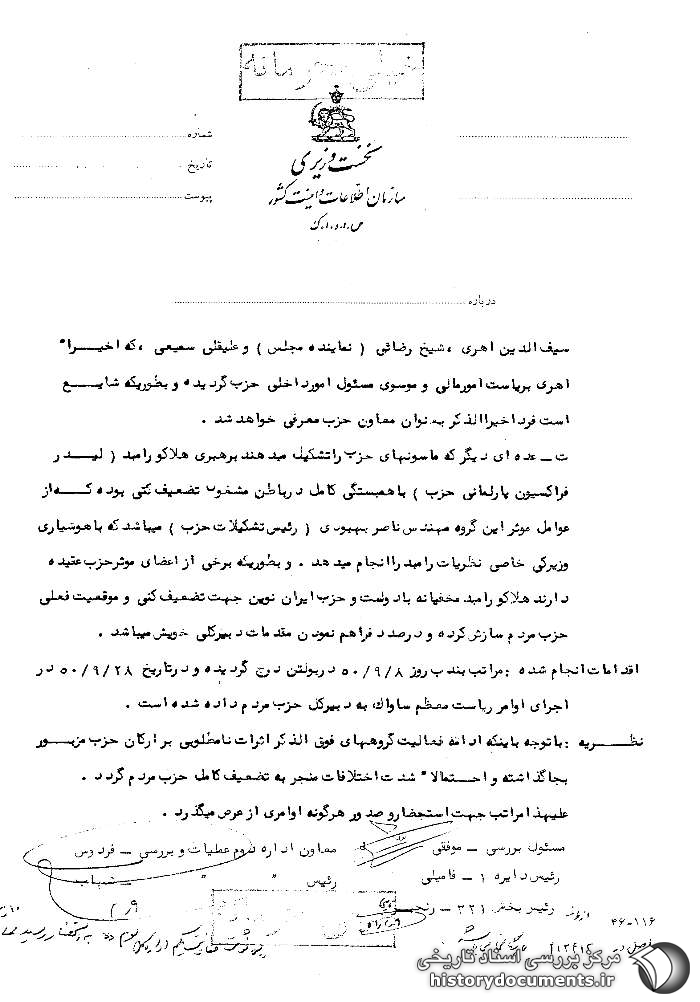 خیلی محرمانه
نخست وزیری
سازمان اطلاعات و امنیت کشور
شماره
تاریخ
پیوست
درباره
سیف الدین اهری ، شیخ رضائی ( نماینده مجلس ) و علیقلی سمیعی ، که اخیرا"
اهری بریاست امورمالی و موسوی مسئول امورداخلی حزب گردیده و بطوریکه شایع
است فرد اخیرالذکر بعنوان معاون حزب معرفی خواهد شد .
ت ـ عده ای دیگر که ماسونهای حزب را تشکیل میدهند برهبری هلاکو رامبد ( لیدر
فراکسیون پارلمانی حزب ) با همبستگی کامل در باطن مشغول تضعیف کنی بوده که از
عوامل موثر این گروه مهندس ناصر بهبودی ( رئیس تشکیلات حزب ) میباشد که با هوشیاری
وزیرکی خاصی نظریات رامبد را انجام میدهد . و بطوریکه برخی از اعضای موثر حزب عقیده
دارند هلاکو رامبد مخفیانه با دولت و حزب ایران نوین جهت تضعیف کنی و موقعیت فعلی
حزب مردم سازش کرده و درصدد فراهم نمودن مقدمات دبیرکلی خویش میباشد .
اقدامات انجام شده : مراتب بند ب روز ۵۰/۹/۸ در بولتن درج گردیده و در تاریخ ۵۰/۹/۲۸ در
اجرای اوامر ریاست معظم ساواک به دبیرکل حزب مردم داده شده است .
نظریه : با توجه باینکه ادامه فعالیت گروههای فوق الذکر اثرات نامطلوبی بر ارکان حزب مزبور
بجا گذاشته و احتمالا" شدت اختلافات منجر به تضعیف کامل حزب مردم گردد .
علیهذا مراتب جهت استحضار و صدور هرگونه اوامری از عرض میگذرد .
مسئول بررسی ـ موفقی
معاون اداره سوم عملیات و بررسی ـ فردوس
رئیس دایره ۱ ـ فامیلی
رئیس " " شهاب
رئیس بخش ۳۲۱ ـ
۴۶-۱۱۶
مرکز بررسی اسناد تاریخی
historydocuments.ir